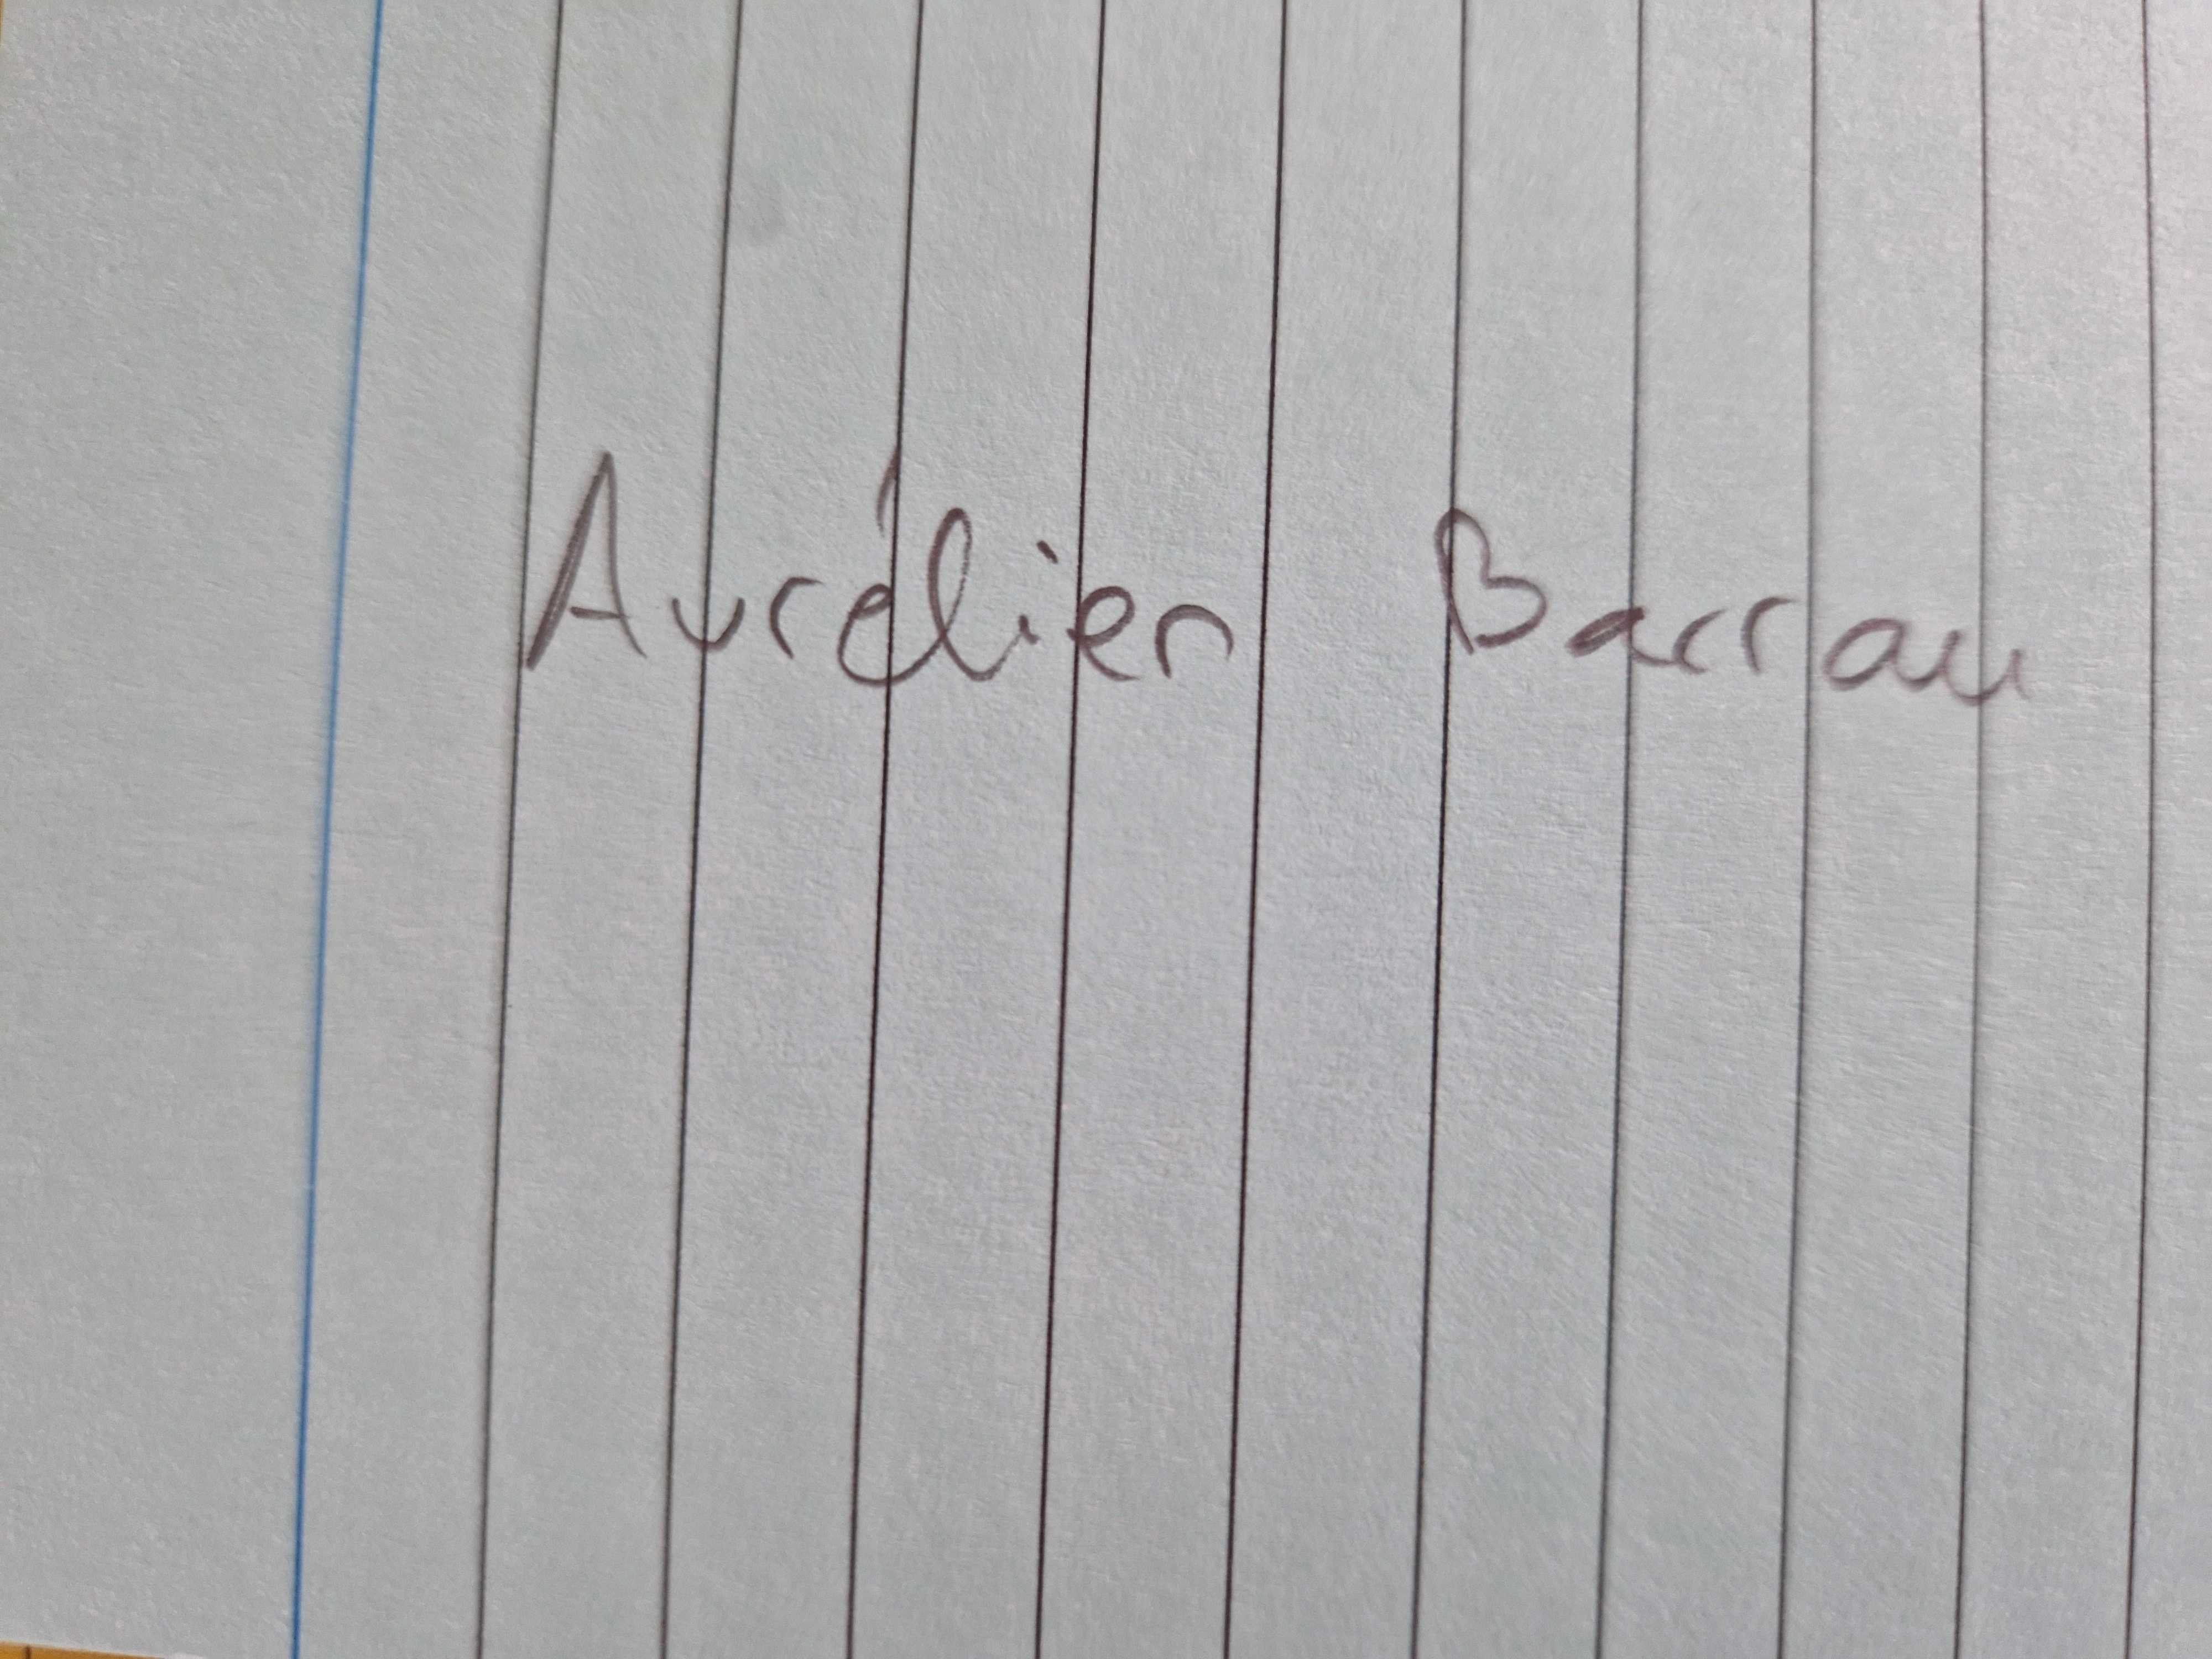 Aurélien Barrau